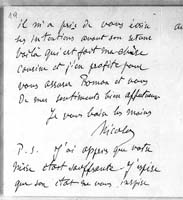 19
il m'a prié de vous écrire
ses intentions avant son retour
voilà qui est fait ma chère
cousine et j'en profite pour
vous assurer Roman et vous
de mes sentiments bien affectueux
Je vous baise les mains
Nicolas
P. S. J'ai appris que votre
mère était souffrante. J'espère
que son état ne vous inspire